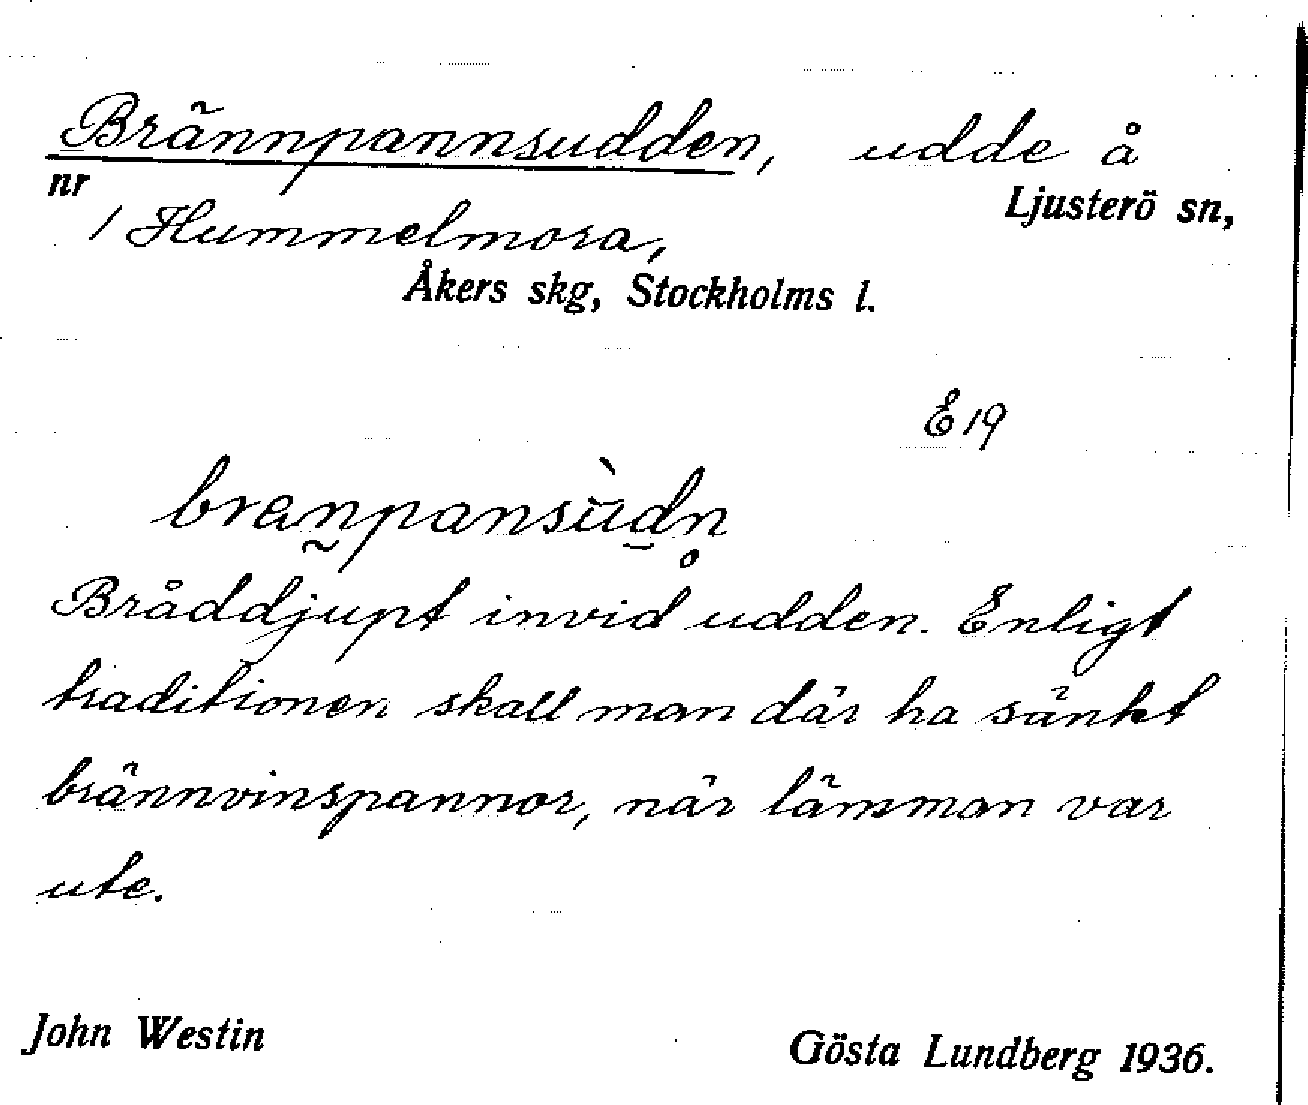 Brännpannsudden, udde å
nr 1 Hummelmora, Ljusterö sn,
Åkers skg, Stockholms l.
E 19
bran̰pansùd̠n̥
Bråddjupt invid udden. Enligt
traditionen skall man där ha sänkt
brännvinspannor, när länsman var
ute.
John Westin
Gösta Lundberg 1936.